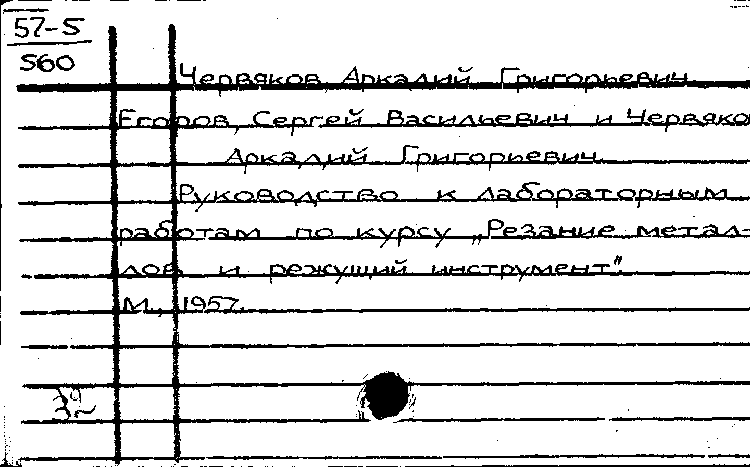 57-5
560
Червяков Аркадий Григорьевич
Егоров, Сергей Васильевич и Червяко
Аркадий Григорьевич.
Руководство к лабораторным
работам по курсу „Резание метал-
лов и режущий инструмент".
М., 1957.